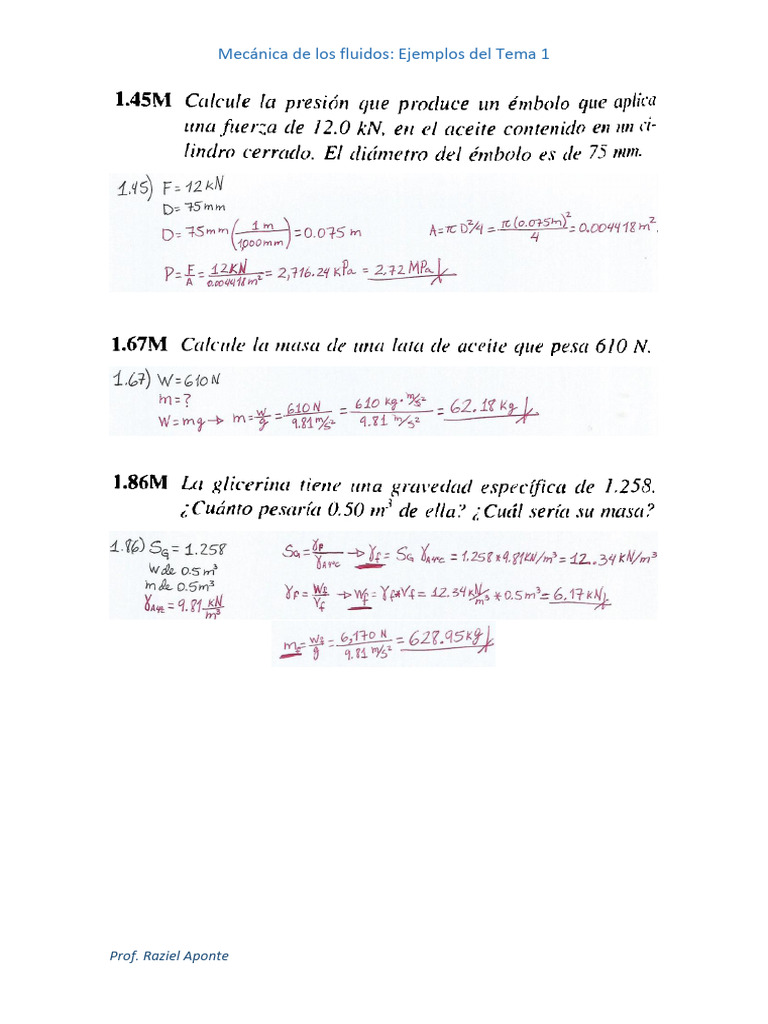 Mecánica de los fluidos: Ejemplos del Tema 1
1.45M Calcule la presión que produce un émbolo que aplica
una fuerza de 12.0 kN, en el aceite contenido en un ci-
lindro cerrado. El diámetro del émbolo es de 75 mm.
1.45) F = 12 kN
D = 75 mm
D = 75 mm (1 m / 1000 mm) = 0.075 m A = π D²/4 = π (0.075 m)² / 4 = 0.004418 m².
P = F/A = 12KN / 0.004418 m² = 2,716.24 kPa = 2,72 MPa
1.67M Calcule la masa de una lata de aceite que pesa 610 N.
1.67) W = 610 N
m = ?
W = mg → m = W/g = 610 N / 9.81 m/s² = 610 kg · m/s² / 9.81 m/s² = 62.18 Kg
1.86M La glicerina tiene una gravedad específica de 1.258.
¿Cuánto pesaría 0.50 m³ de ella? ¿Cuál sería su masa?
1.86) SG = 1.258 SG = γf / γA4°C → γf = SG γA4°C = 1.258 * 9.81 KN/m³ = 12.34 kN/m³
W de 0.5 m³
m de 0.5 m³ γf = Wf / Vf → Wf = γf * Vf = 12.34 kN/m³ * 0.5 m³ = 6.17 kN
γA4°C = 9.81 kN/m³
mf = Wf / g = 6,170 N / 9.81 m/s² = 628.95 kg
Prof. Raziel Aponte